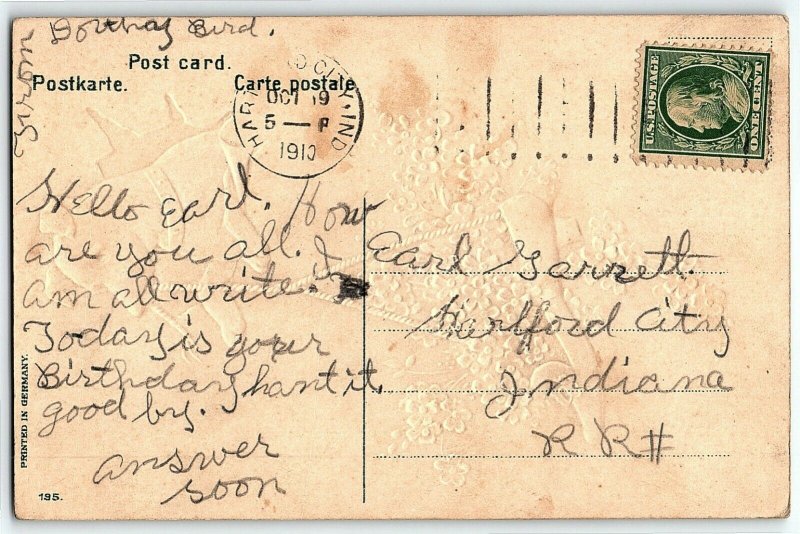 From Dorthay Bird.
Post card.
Postkarte. Carte postale
HARTFORD CITY. IND
OCT 19
5 — P
1910
U.S. POSTAGE
ONE CENT
Hello Earl. How
are you all. I
am all write.
Today is your
Birthday hant it.
good by.
answer
soon
Earl Garrett.
Hartford City
Indiana
R R #
PRINTED IN GERMANY.
195.